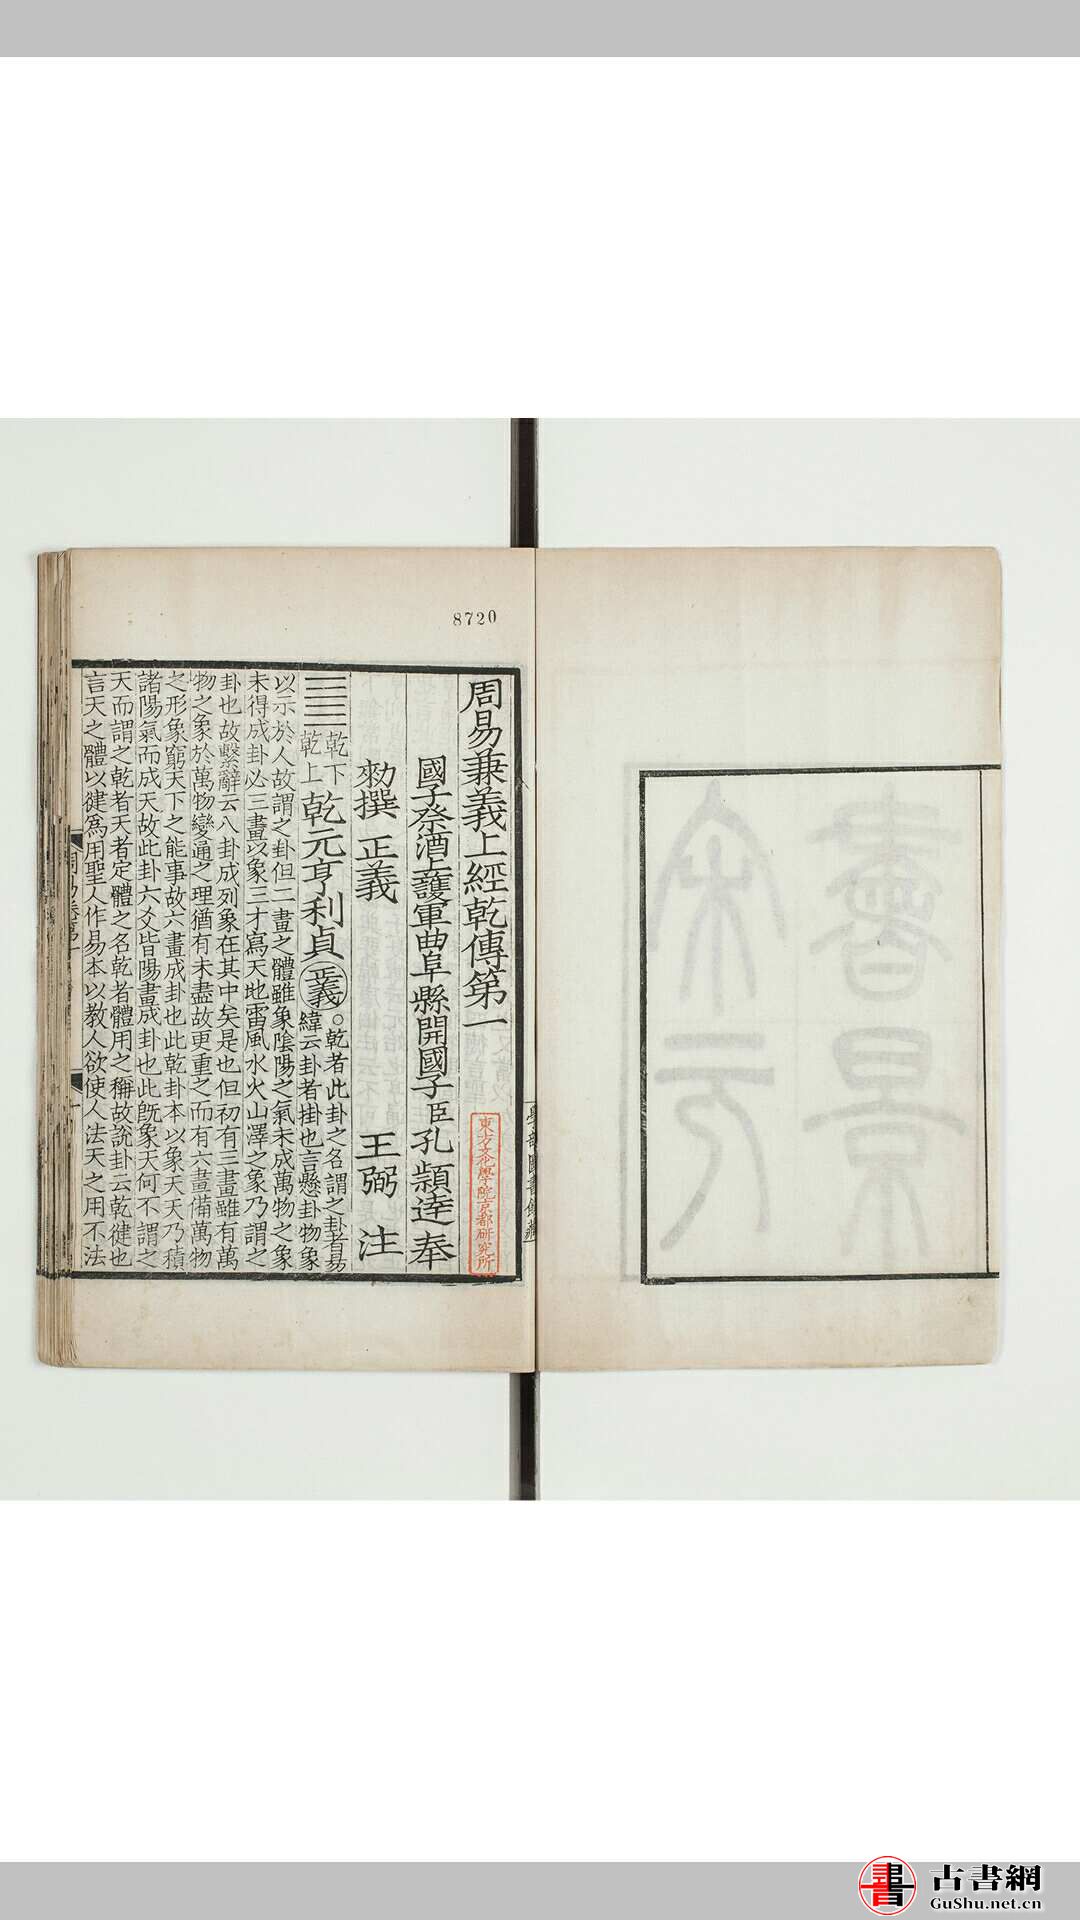 8720
周易兼義上經乾傳第一
國子祭酒上護軍曲阜縣開國子臣孔穎達奉
勑撰正義 王弼 注
乾下
乾上
乾元亨利貞
正義
。乾者此卦之名謂之卦者易
緯云卦者掛也言懸卦物象
以示於人故謂之卦但二畫之體雖象陰陽之氣未成萬物之象
未得成卦必三畫以象三才寫天地雷風水火山澤之象乃謂之
卦也故繫辭云八卦成列象在其中矣是也但初有三畫雖有萬
物之象於萬物變通之理猶有未盡故更重之而有六畫備萬物
之形象窮天下之能事故六畫成卦也此乾卦本以象天天乃積
諸陽氣而成天故此卦六爻皆陽畫成卦也此旣象天何不謂之
天而謂之乾者天者定體之名乾者體用之稱故說卦云乾健也
言天之體以健爲用聖人作易本以教人欲使人法天之用不法
東方文化學院京都研究所
古書網
GuShu.net.cn